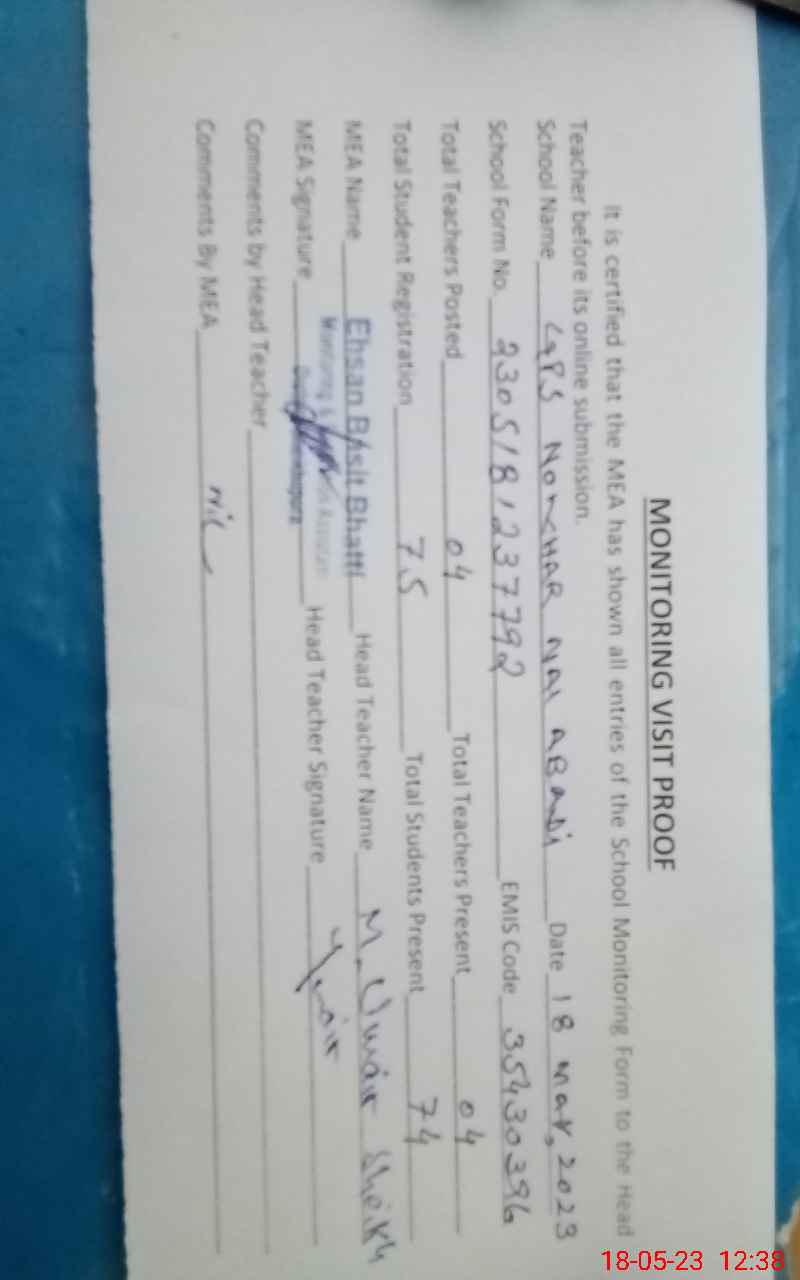 MONITORING VISIT PROOF
It is certified that the MEA has shown all entries of the School Monitoring Form to the Head
Teacher before its online submission.
School Name GPS NOKHAR NAI ABADI Date 18 May, 2023
School Form No. 2305181237792 EMIS Code 35430396
Total Teachers Posted 04 Total Teachers Present 04
Total Student Registration 75 Total Students Present 74
MEA Name Ehsan Basit Bhatti Head Teacher Name M. Umair Sheikh
Monitoring &
MEA Signature Head Teacher Signature Umair
Comments by Head Teacher
Comments By MEA Nil
18-05-23 12:38